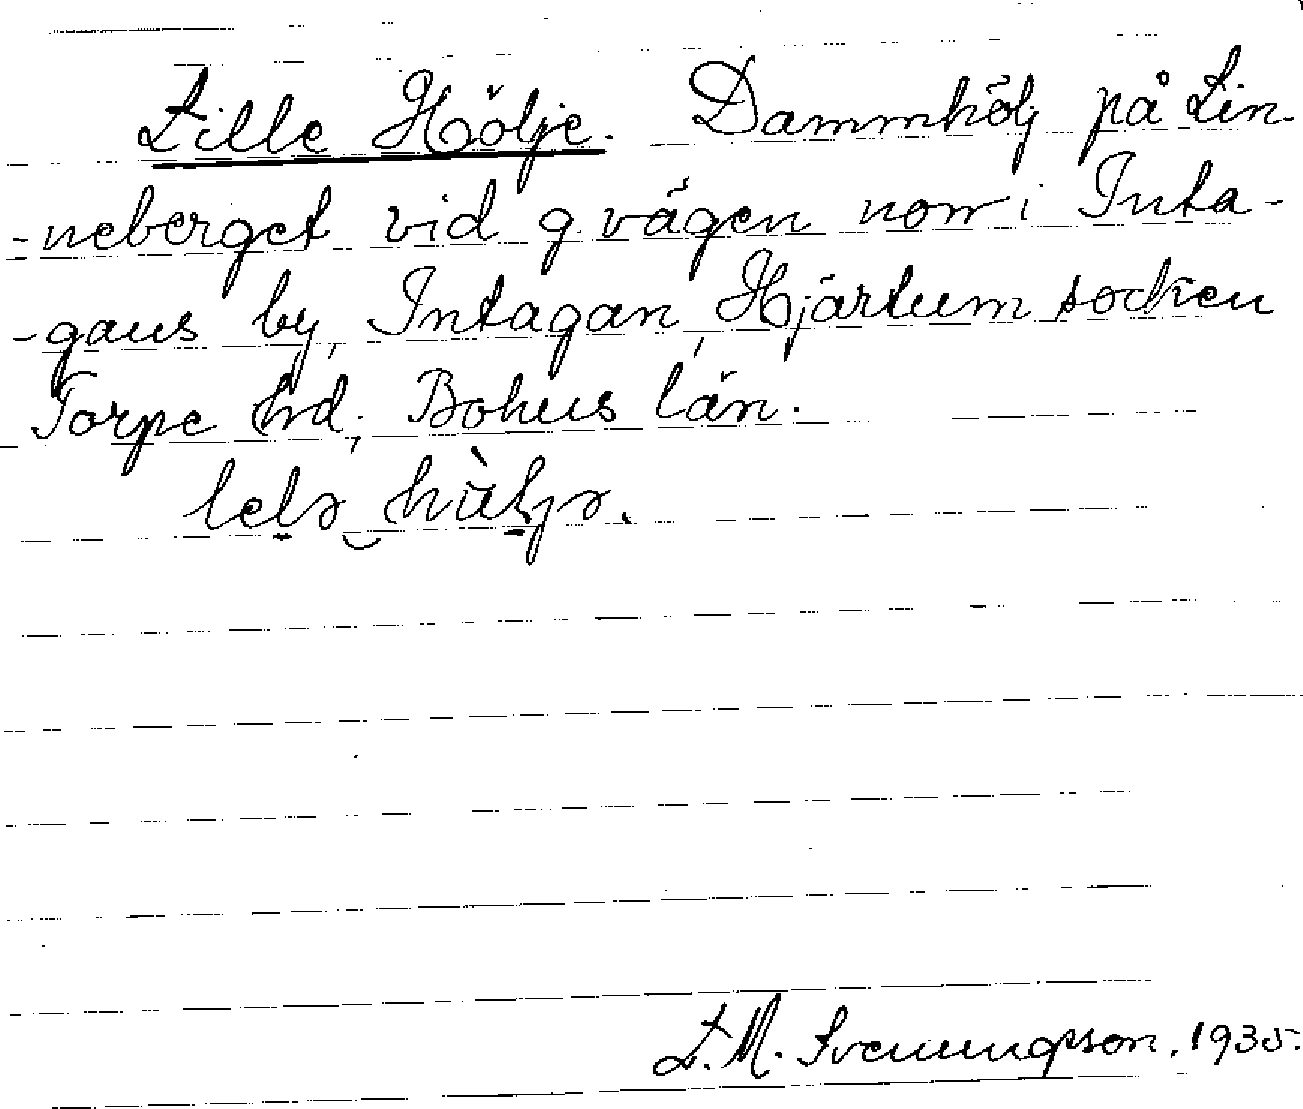 Lille Hölje. Dammhölj på Lin-
-neberget vid g. vägen norr i Inta-
-gans by, Intagan, Hjärtum socken
Torpe hd; Bohus län.
lelə hùljə.
L. M. Svenungsson. 1935.